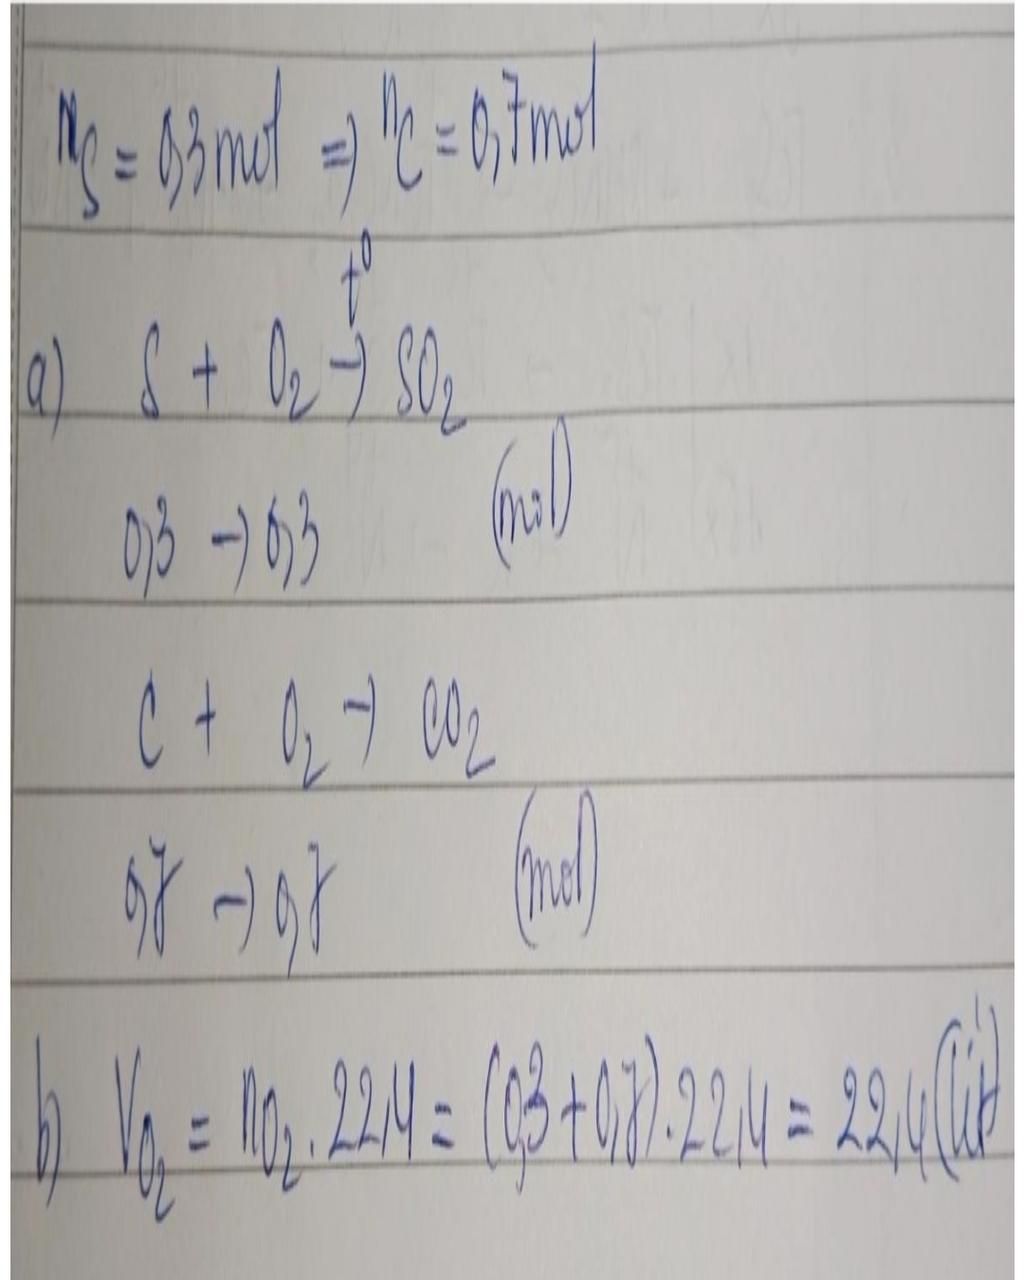 nS = 0,3 mol => nC = 0,7 mol
t⁰
a) S + O₂ → SO₂
0,3 → 0,3 (mol)
C + O₂ → CO₂
0,7 → 0,7 (mol)
b) VO₂ = nO₂ . 22,4 = (0,3 + 0,7) . 22,4 = 22,4 (lít)